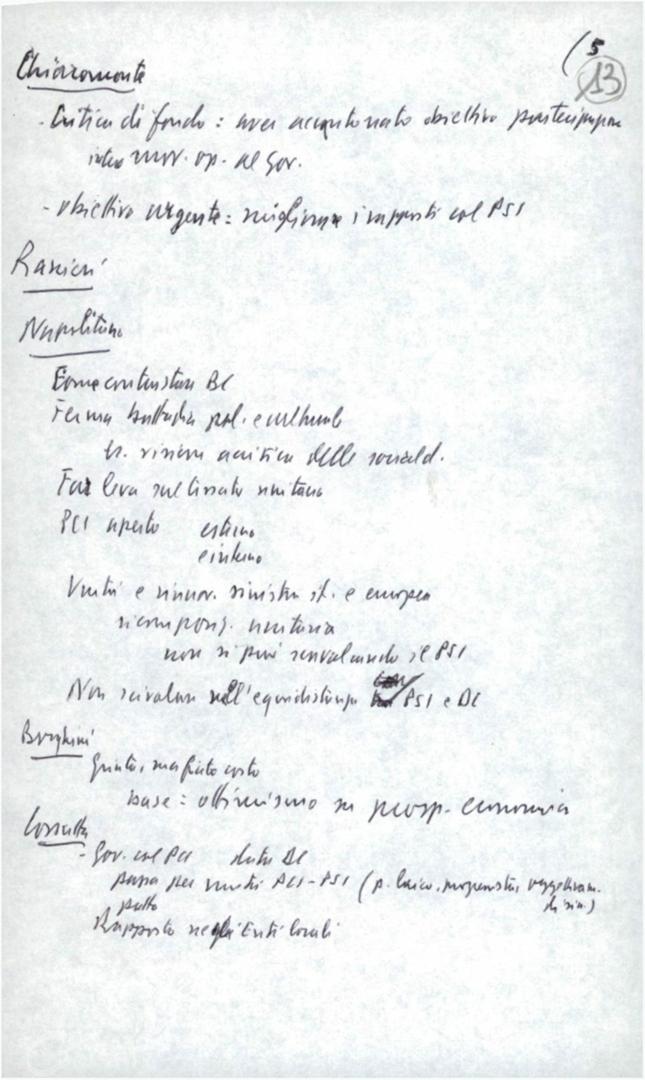 (5
13
Chiaromonte
- Critica di fondo: aver accantonato obiettivo partecipazione
intero mov. op. al gov.
- obiettivo urgente: migliorare i rapporti col PSI
Ranieri
Napolitano
Come contrastare DC
Ferma battaglia pol. e culturale
visione acritica delle sociald.
Far leva sul tessuto unitario
PCI aperto esterno
e interno
Unità e rinnov. sinistra it. e europea
ricompos. unitaria
non si può scavalcando il PSI
Non scivolare sull'equidistanza PSI e DC
Borghini
Giunta, ma fiato corto
base: ottimismo su prosp. economica
Cossutta
- Gov. col PCI DC
passa per unità PCI-PSI (p. laico, progressista,
patto
Rapporto negli Enti locali